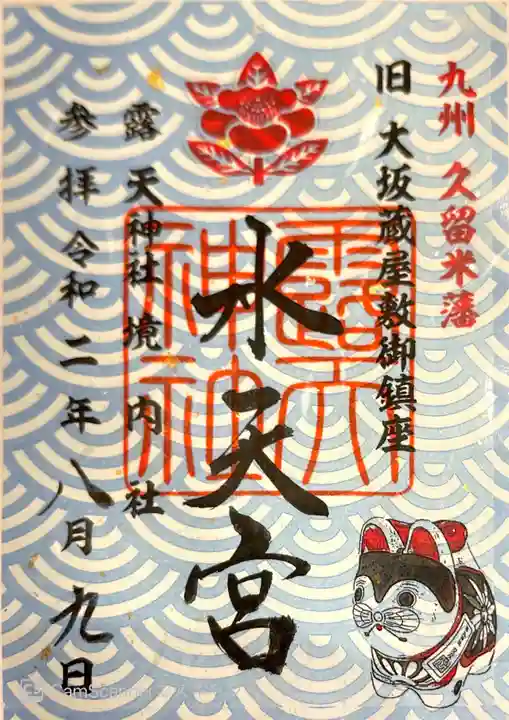 九州 久留米藩
旧 大坂蔵屋敷御鎮座
露天神社
水天宮
露天神社境内社
参拝令和二年八月九日
CamScanner